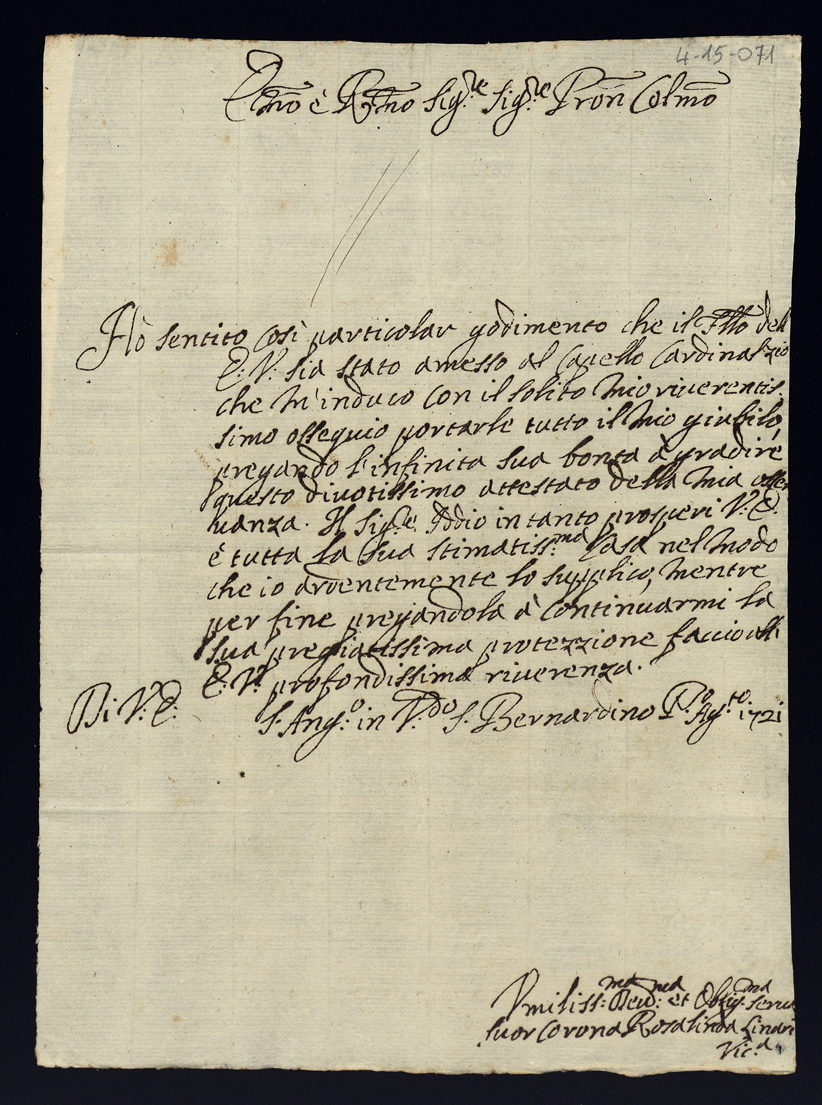 4-15-071
Em̃o è Rm̃o Sig.re Sig.re Pron̄ Colm̃o
Hò sentito così particolar godimento che il Fllo dell
E: V: sia stato amesso al Capello Cardinalizio
che m'induco con il solito mio riverentis-
simo ossequio portarle tutto il mio giubilo,
pregando l'infinita sua bontà à gradire
questo divotissimo attestato della mia osser
vanza. Il Sig.e Iddio intanto prosperi V: E:
è tutta la sua stimatiss:ma Casa nel modo
che io ardentemente lo supplico, mentre
per fine pregandola à continuarmi la
sua pregiatissima protezzione faccio all'
E: V: profondissima riverenza.
Di V: E: S. Ang.o in V.do S. Bernardino P.o Ag.to 1721
Vmiliss:ma Dev:ma et Oblig:ma serva
Suor Corona Rosalinda Linari
Vic.a